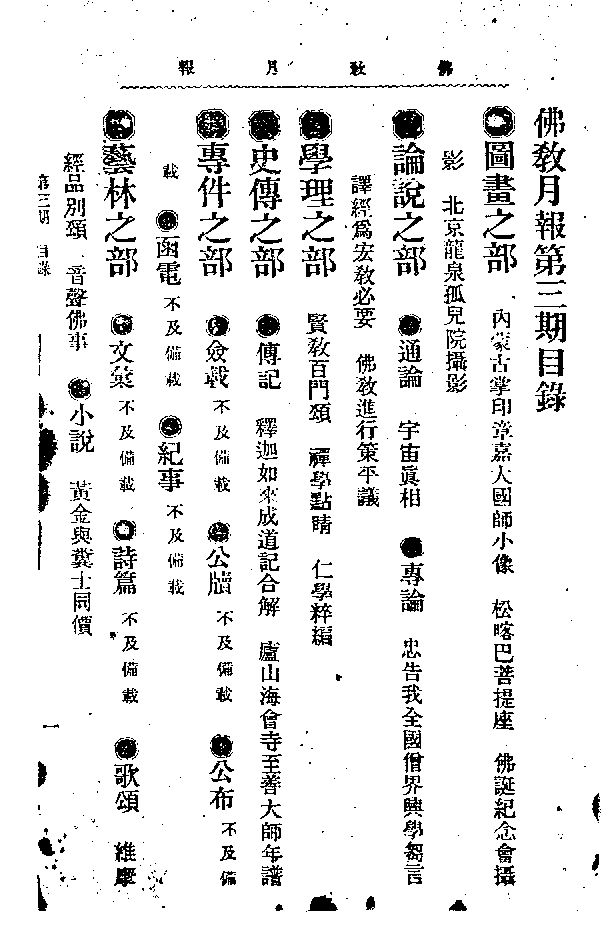 佛教月報
佛教月報第三期目錄
圖畫之部 內蒙古掌印章嘉大國師小像 松喀巴菩提座 佛誕紀念會攝
影 北京龍泉孤兒院攝影
論說之部 通論 宇宙眞相 專論 忠告我全國僧界興學芻言
譯經爲宏敎必要 佛敎進行策平議
學理之部 賢敎百門頌 禪學點睛 仁學粹編
史傳之部 傳記 釋迦如來成道記合解 廬山海會寺至善大師年譜
專件之部 僉載 不及備載 公牘 不及備載 公布 不及備
載 函電 不及備載 紀事 不及備載
藝林之部 文彙 不及備載 詩篇 不及備載 歌頌 維摩
經品別頌 音聲佛事 小說 黃金與糞土同價
第三期 目錄 一